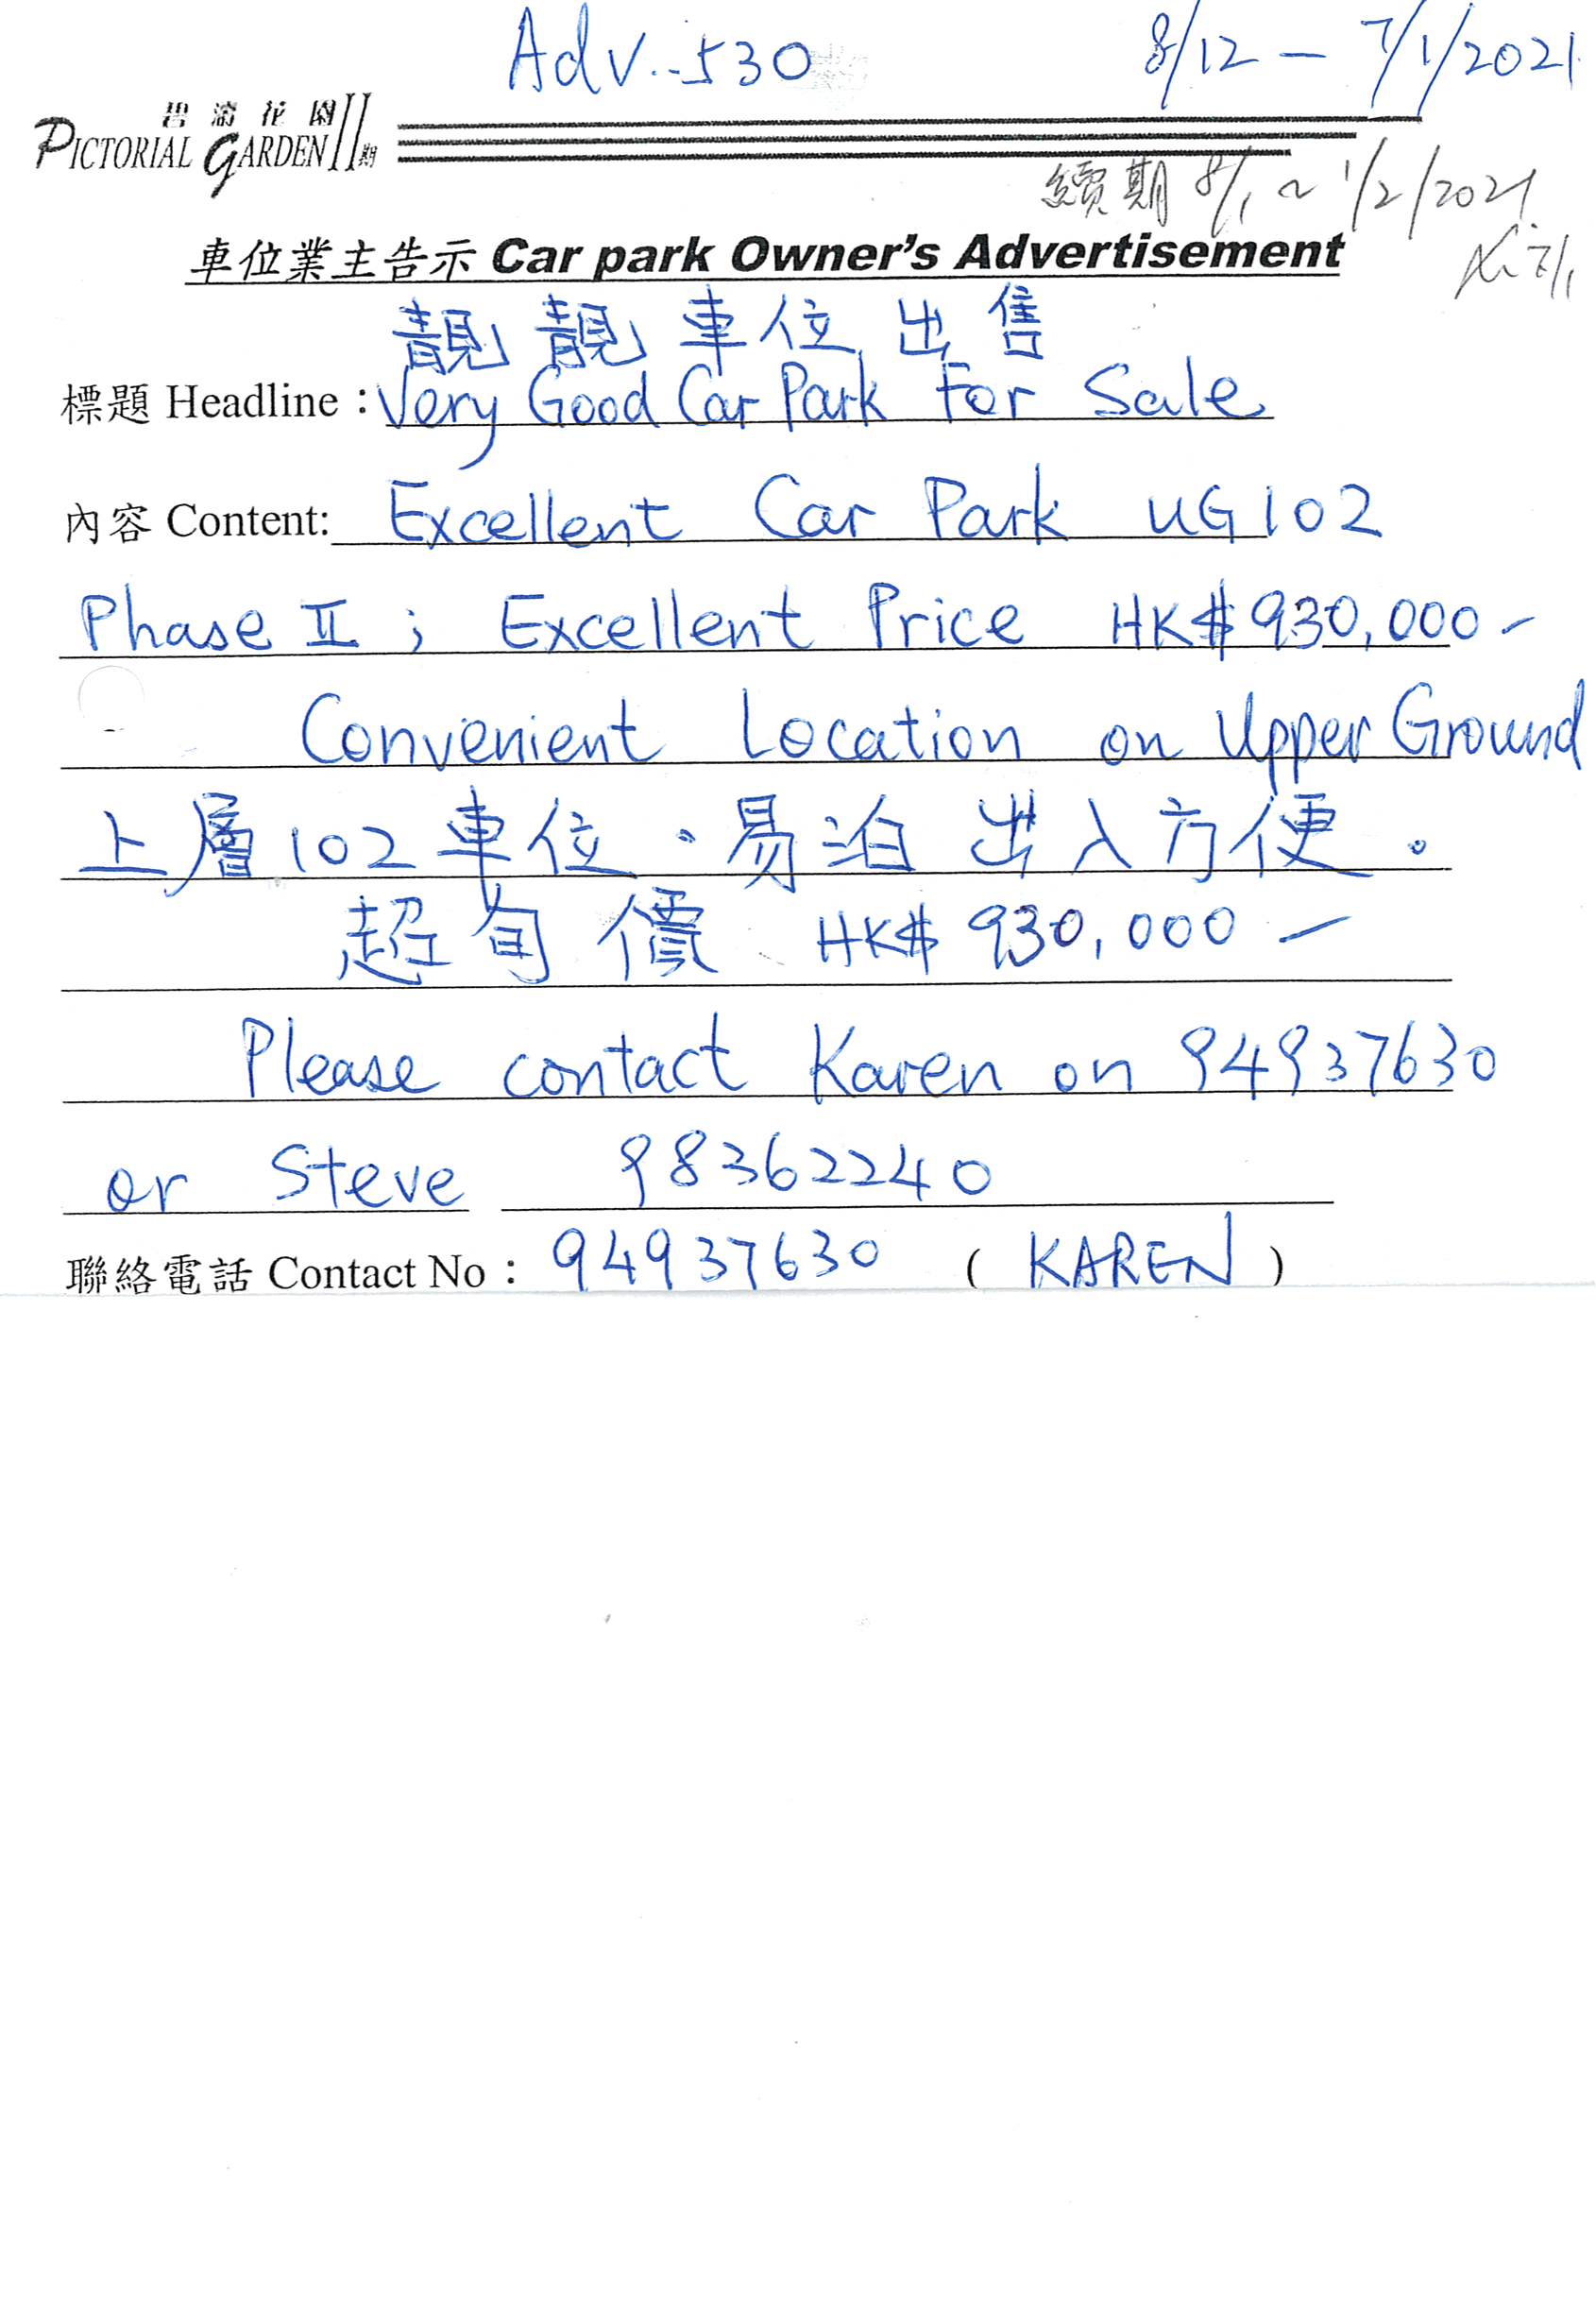 Adv.-530
8/12 — 7/1/2021
碧濤花園
PICTORIAL GARDEN II期
續期 8/1 ~ 1/2/2021
7/1
車位業主告示 Car park Owner's Advertisement
靚靚車位出售
標題 Headline：Very Good Car Park For Sale
內容 Content: Excellent Car Park UG102
Phase II ; Excellent Price HK$930,000-
Convenient Location on Upper Ground
上層102車位．易泊出入方便。
超旬價 HK$ 930,000 —
Please contact Karen on 94937630
or Steve 98362240
聯絡電話 Contact No：94937630 ( KAREN )